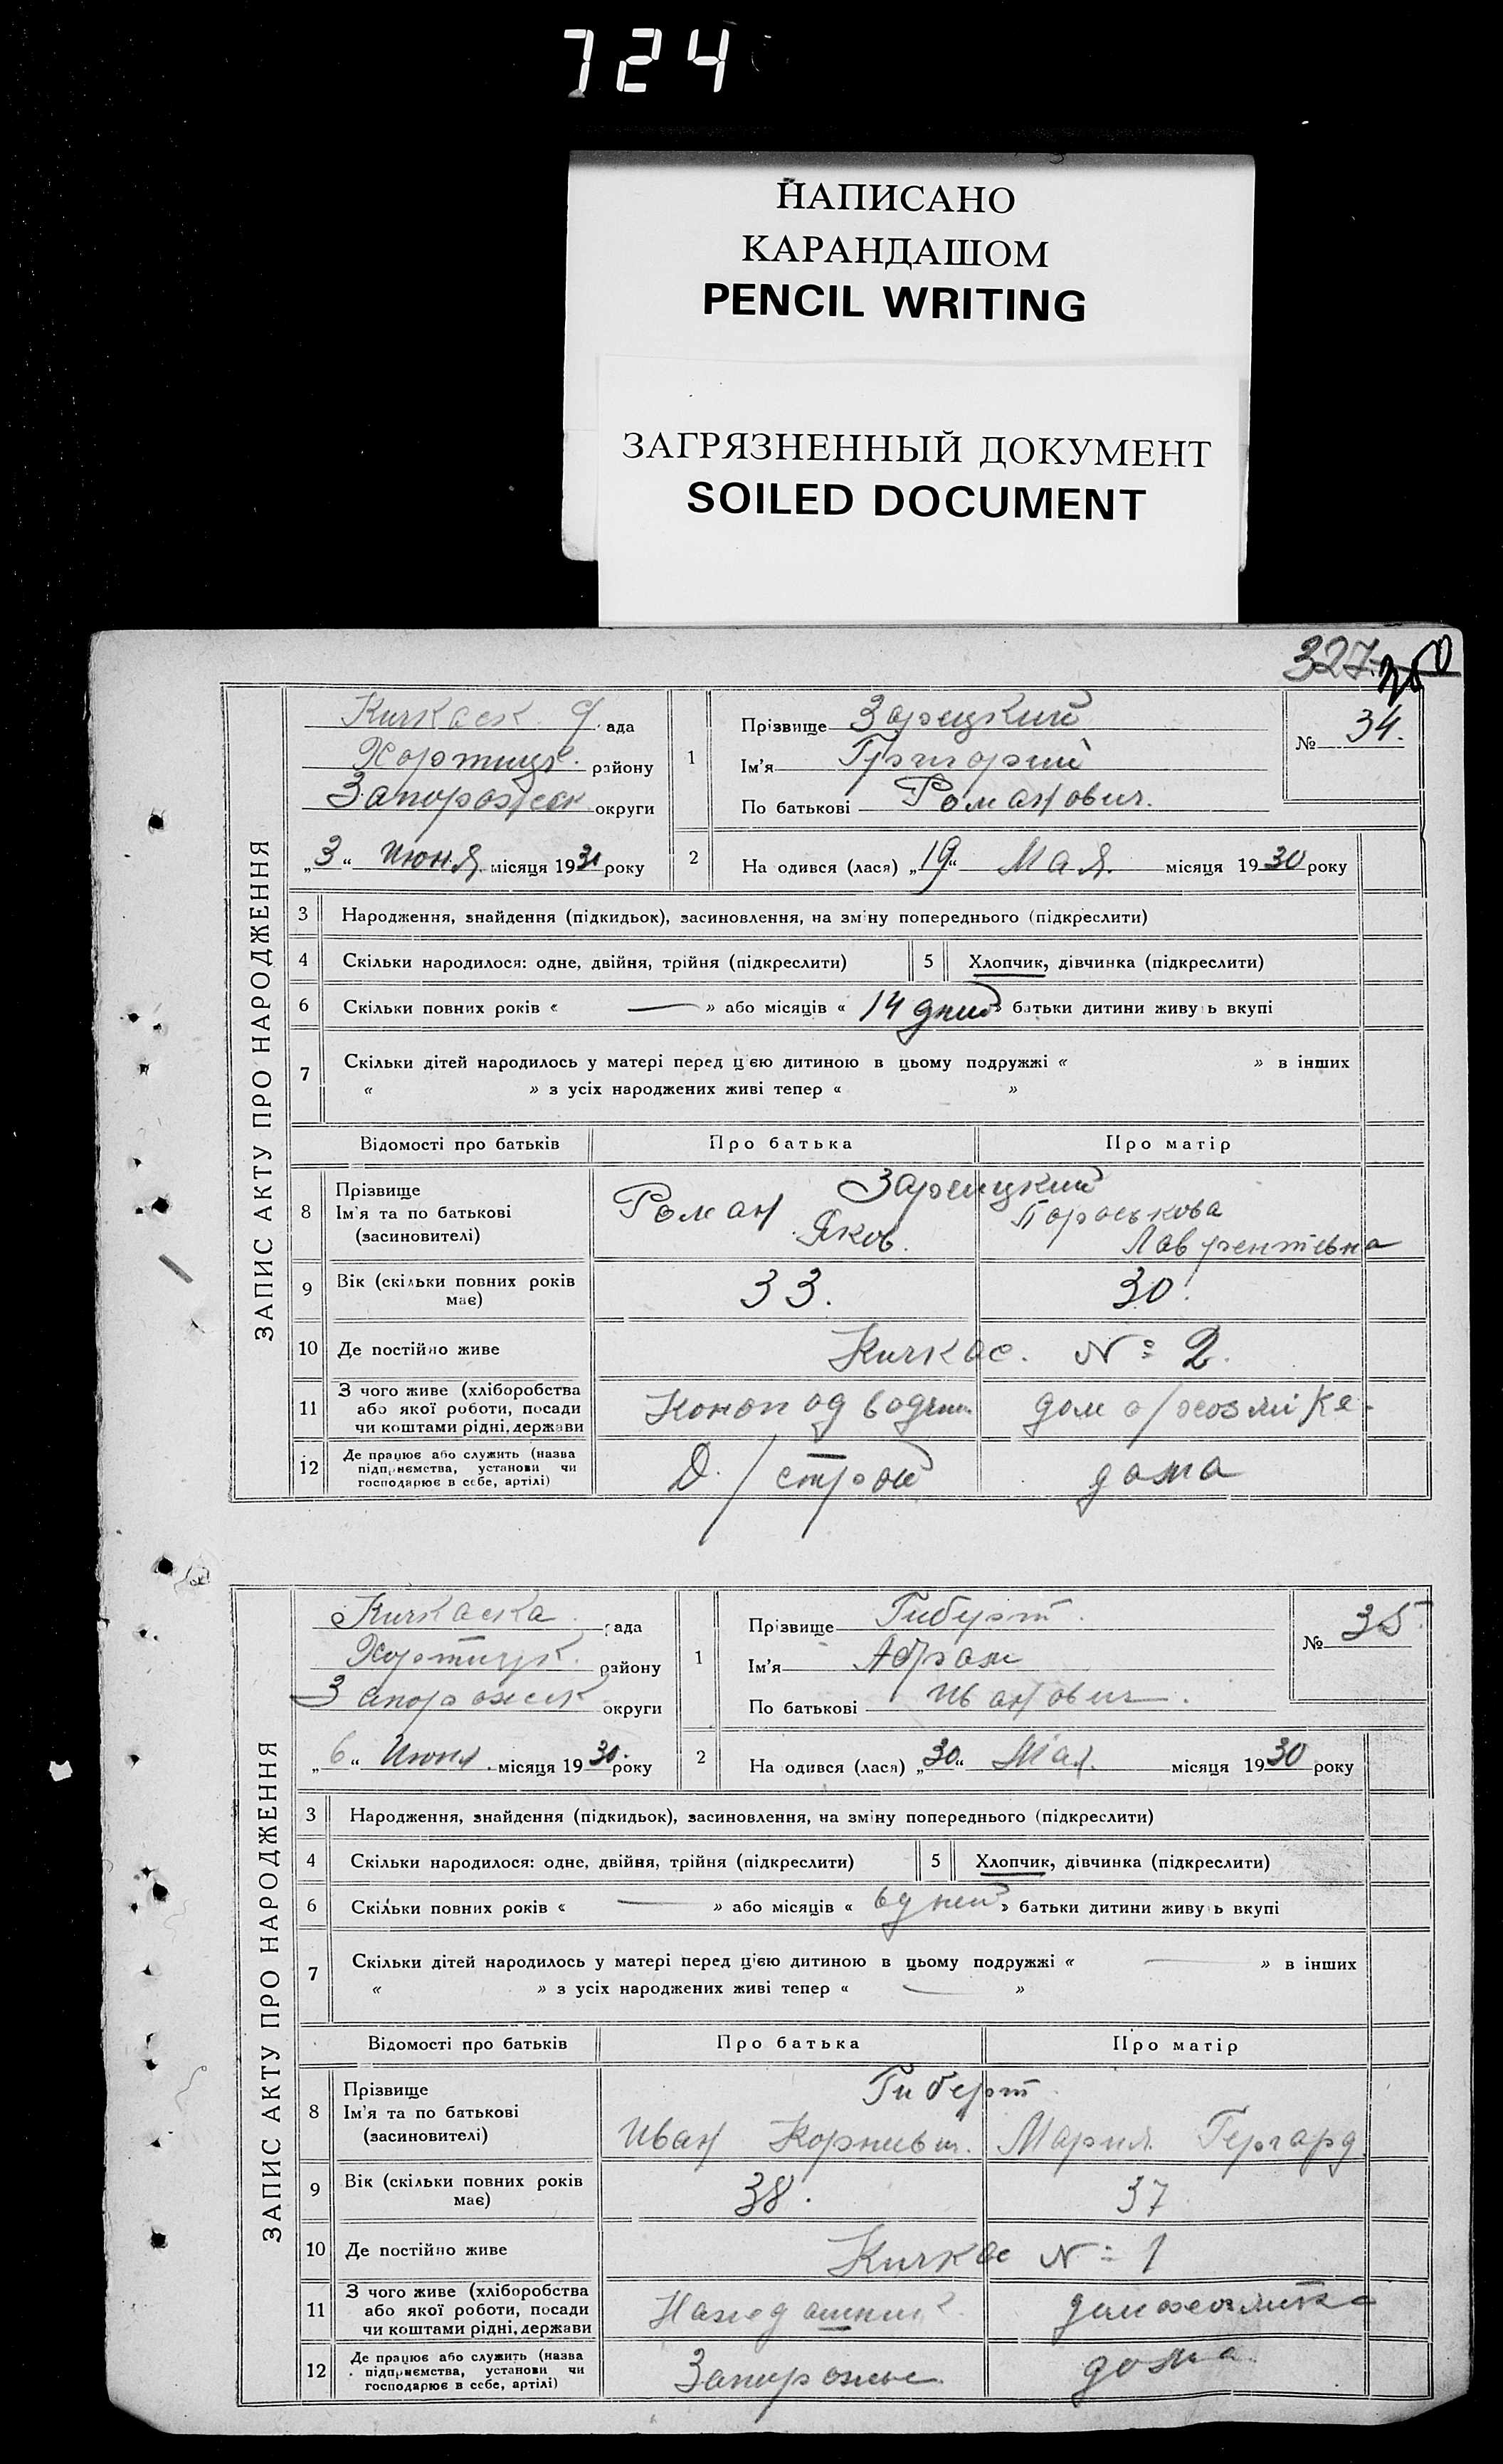 724
НАПИСАНО
КАРАНДАШОМ
PENCIL WRITING
ЗАГРЯЗНЕННЫЙ ДОКУМЕНТ
SOILED DOCUMENT
327
ЗАПИС АКТУ ПРО НАРОДЖЕННЯ
Кичкаск. рада
Хортицк. району
Запорожск округи
„3“ Июня місяця 1930 року
1 Прізвище Зарецкий
Ім'я Григорий
По батькові Романович.
№ 34.
2 На одився (лася) „19“ Мая. місяця 1930 року
3 Народження, знайдення (підкидьок), засиновлення, на зміну попереднього (підкреслити)
4 Скільки народилося: одне, двійня, трійня (підкреслити) 5 Хлопчик, дівчинка (підкреслити)
6 Скільки повних років « — » або місяців « 14 дний » батьки дитини живуть вкупі
7 Скільки дітей народилось у матері перед цією дитиною в цьому подружжі « » в інших
« » з усіх народжених живі тепер « »
Відомості про батьків Про батька Про матір
8 Прізвище
Ім'я та по батькові
(засиновителі)
Зарецкий
Роман Яков.
Параськова
Лаврентевна
9 Вік (скільки повних років
має) 33. 30.
10 Де постійно живе Кичкас. № 2.
11 З чого живе (хліборобства
або якої роботи, посади
чи коштами рідні, держави
дом о/хозяйке.
12 Де працює або служить (назва
підприємства, установи чи
господарює в себе, артілі)
Д./строй дома
ЗАПИС АКТУ ПРО НАРОДЖЕННЯ
Кичкаска рада
Хортицк. району
Запорожск округи
„6“ Июня місяця 1930. року
1 Прізвище Гиберт.
Ім'я Абрам
По батькові Иванович.
№ 35.
2 На одився (лася) „30“ Мая. місяця 1930 року
3 Народження, знайдення (підкидьок), засиновлення, на зміну попереднього (підкреслити)
4 Скільки народилося: одне, двійня, трійня (підкреслити) 5 Хлопчик, дівчинка (підкреслити)
6 Скільки повних років « — » або місяців « 6 дней » батьки дитини живуть вкупі
7 Скільки дітей народилось у матері перед цією дитиною в цьому подружжі « — » в інших
« » з усіх народжених живі тепер « — »
Відомості про батьків Про батька Про матір
8 Прізвище
Ім'я та по батькові
(засиновителі)
Гиберт
Иван Корнивич. Мария Гергард
9 Вік (скільки повних років
має) 38. 37
10 Де постійно живе Кичкас № 1
11 З чого живе (хліборобства
або якої роботи, посади
чи коштами рідні, держави
домохозяйка
12 Де працює або служить (назва
підприємства, установи чи
господарює в себе, артілі)
Запорожье дома.